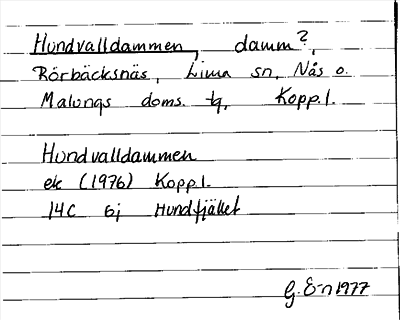 Hundvalldammen, damm?,
Rörbäcksnäs, Lima sn, Nås o.
Malungs doms. tg, Kopp.l.
Hundvalldammen
ek (1976) Kopp.l.
14C 6j Hundfjället
G. E-n 1977